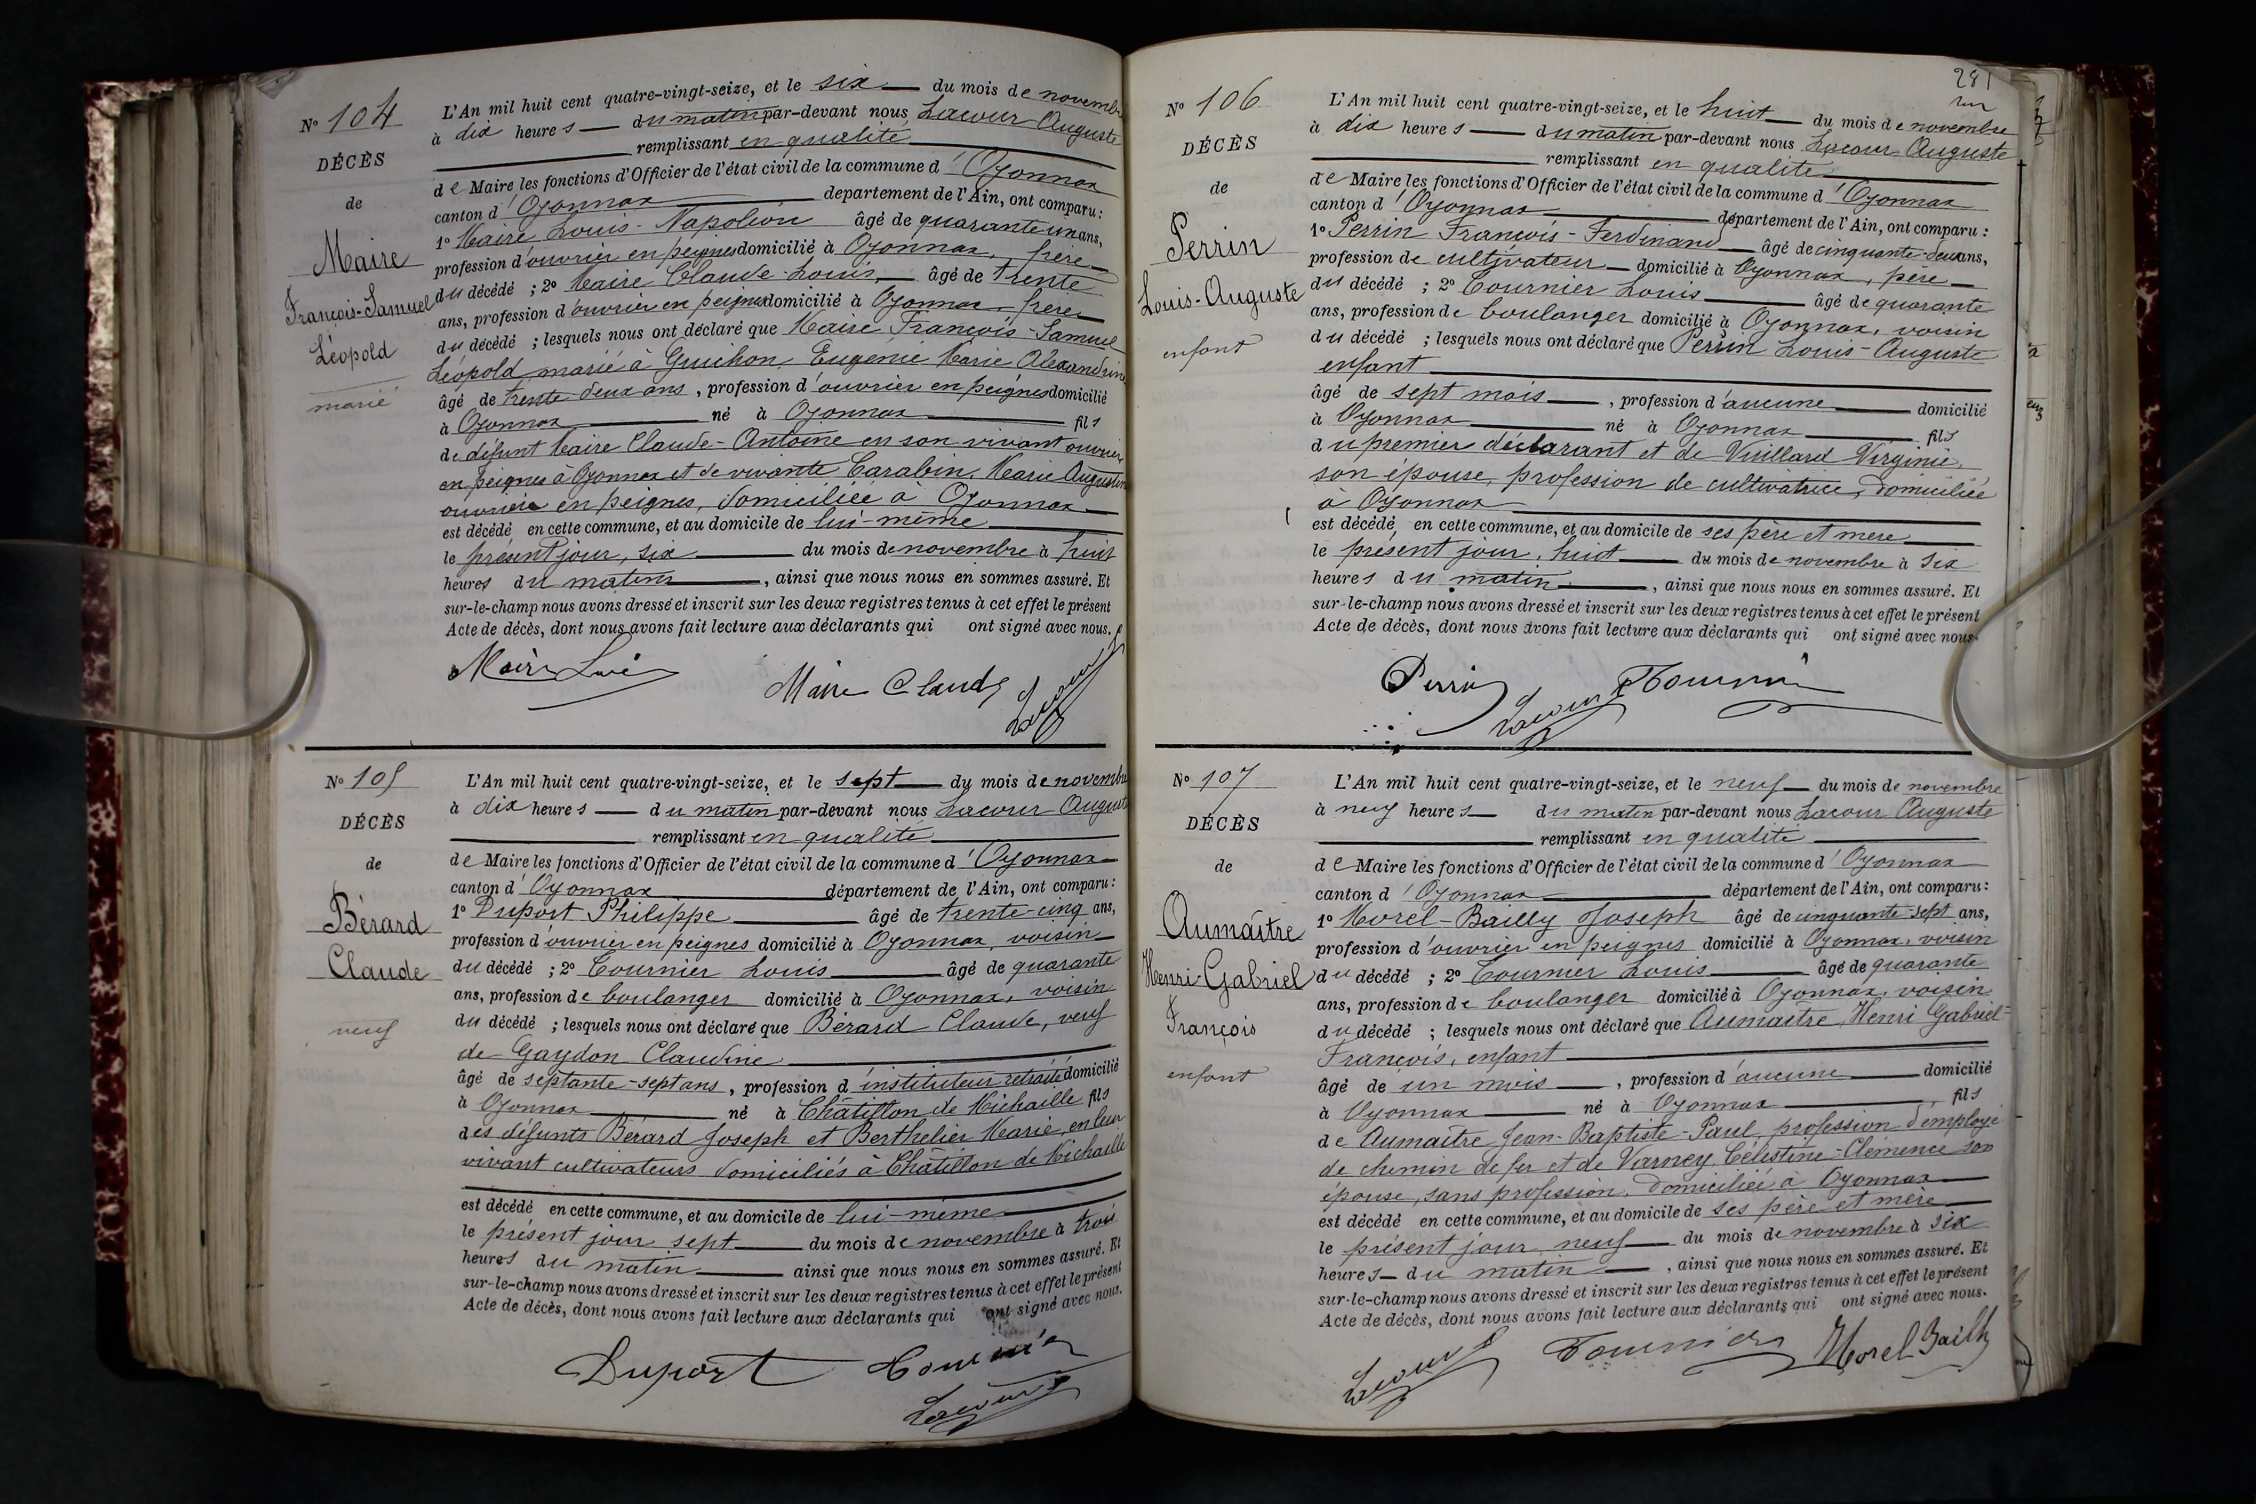 Nº 104
DÉCÈS
de
Maire
François-Samuel
Léopold
marié
L'An mil huit cent quatre-vingt-seize, et le six du mois de novembre
à dix heures du matin par-devant nous Lacour Auguste
remplissant en qualité
de Maire les fonctions d'Officier de l'état civil de la commune d'Oyonnax
canton d'Oyonnax departement de l'Ain, ont comparu :
1º Maire Louis-Napoléon âgé de quarante un ans,
profession d'ouvrier en peignes domicilié à Oyonnax, frère
du décédé ; 2º Maire Claude-Louis, âgé de trente
ans, profession d'ouvrier en peignes domicilié à Oyonnax, frère
du décédé ; lesquels nous ont déclaré que Maire François-Samuel
Léopold marié à Guichon Eugénie Marie Alexandrine
âgé de trente-deux ans, profession d'ouvrier en peignes domicilié
à Oyonnax né à Oyonnax fils
de défunt Maire Claude-Antoine en son vivant ouvrier
en peignes à Oyonnax et de vivante Carabin, Marie Augustine
ouvrière en peignes, domiciliée à Oyonnax
est décédé en cette commune, et au domicile de lui-même
le présent jour, six du mois de novembre à huit
heures du matin, ainsi que nous nous en sommes assuré. Et
sur-le-champ nous avons dressé et inscrit sur les deux registres tenus à cet effet le présent
Acte de décès, dont nous avons fait lecture aux déclarants qui ont signé avec nous.
Maire Claude
Lacour
Nº 105
DÉCÈS
de
Bérard
Claude
veuf
L'An mil huit cent quatre-vingt-seize, et le sept du mois de novembre
à dix heures du matin par-devant nous Lacour Auguste
remplissant en qualité
de Maire les fonctions d'Officier de l'état civil de la commune d'Oyonnax
canton d'Oyonnax département de l'Ain, ont comparu :
1º Duport Philippe âgé de trente-cinq ans,
profession d'ouvrier en peignes domicilié à Oyonnax, voisin
du décédé ; 2º Tournier Louis âgé de quarante
ans, profession de boulanger domicilié à Oyonnax, voisin
du décédé ; lesquels nous ont déclaré que Bérard Claude, veuf
de Gaydon Claudine
âgé de septante-sept ans, profession d'instituteur retraité domicilié
à Oyonnax né à Châtillon de Michaille fils
des défunts Bérard Joseph et Berthelier Marie, en leur
vivant cultivateurs domiciliés à Châtillon de Michaille
est décédé en cette commune, et au domicile de lui-même
le présent jour sept du mois de novembre à trois
heures du matin ainsi que nous nous en sommes assuré. Et
sur-le-champ nous avons dressé et inscrit sur les deux registres tenus à cet effet le présent
Acte de décès, dont nous avons fait lecture aux déclarants qui ont signé avec nous.
Duport Tournier
Lacour
281
Nº 106
DÉCÈS
de
Perrin
Louis-Auguste
enfant
L'An mil huit cent quatre-vingt-seize, et le huit du mois de novembre
à dix heures du matin par-devant nous Lacour Auguste
remplissant en qualité
de Maire les fonctions d'Officier de l'état civil de la commune d'Oyonnax
canton d'Oyonnax département de l'Ain, ont comparu :
1º Perrin François-Ferdinand âgé de cinquante-deux ans,
profession de cultivateur domicilié à Oyonnax, père
du décédé ; 2º Tournier Louis âgé de quarante
ans, profession de boulanger domicilié à Oyonnax, voisin
du décédé ; lesquels nous ont déclaré que Perrin Louis-Auguste
enfant
âgé de sept mois, profession d'aucune domicilié
à Oyonnax né à Oyonnax fils
du premier déclarant et de Vuillard Virginie,
son épouse, profession de cultivatrice, domiciliée
à Oyonnax
est décédé en cette commune, et au domicile de ses père et mère
le présent jour, huit du mois de novembre à six
heures du matin, ainsi que nous nous en sommes assuré. Et
sur-le-champ nous avons dressé et inscrit sur les deux registres tenus à cet effet le présent
Acte de décès, dont nous avons fait lecture aux déclarants qui ont signé avec nous.
Perrin Lacour Tournier
Nº 107
DÉCÈS
de
Aumaître
Henri-Gabriel
François
enfant
L'An mil huit cent quatre-vingt-seize, et le neuf du mois de novembre
à neuf heures du matin par-devant nous Lacour Auguste
remplissant en qualité
de Maire les fonctions d'Officier de l'état civil de la commune d'Oyonnax
canton d'Oyonnax département de l'Ain, ont comparu :
1º Morel-Bailly Joseph âgé de cinquante-sept ans,
profession d'ouvrier en peignes domicilié à Oyonnax, voisin
du décédé ; 2º Tournier Louis âgé de quarante
ans, profession de boulanger domicilié à Oyonnax, voisin
du décédé ; lesquels nous ont déclaré que Aumaître, Henri Gabriel=
François, enfant
âgé de un mois, profession d'aucune domicilié
à Oyonnax né à Oyonnax, fils
de Aumaître Jean-Baptiste-Paul, profession d'employé
de chemin de fer et de Varney Célestine-Clémence son
épouse, sans profession, domiciliée à Oyonnax
est décédé en cette commune, et au domicile de ses père et mère
le présent jour neuf du mois de novembre à six
heures du matin, ainsi que nous nous en sommes assuré. Et
sur-le-champ nous avons dressé et inscrit sur les deux registres tenus à cet effet le présent
Acte de décès, dont nous avons fait lecture aux déclarants qui ont signé avec nous.
Lacour Tournier Morel Bailly